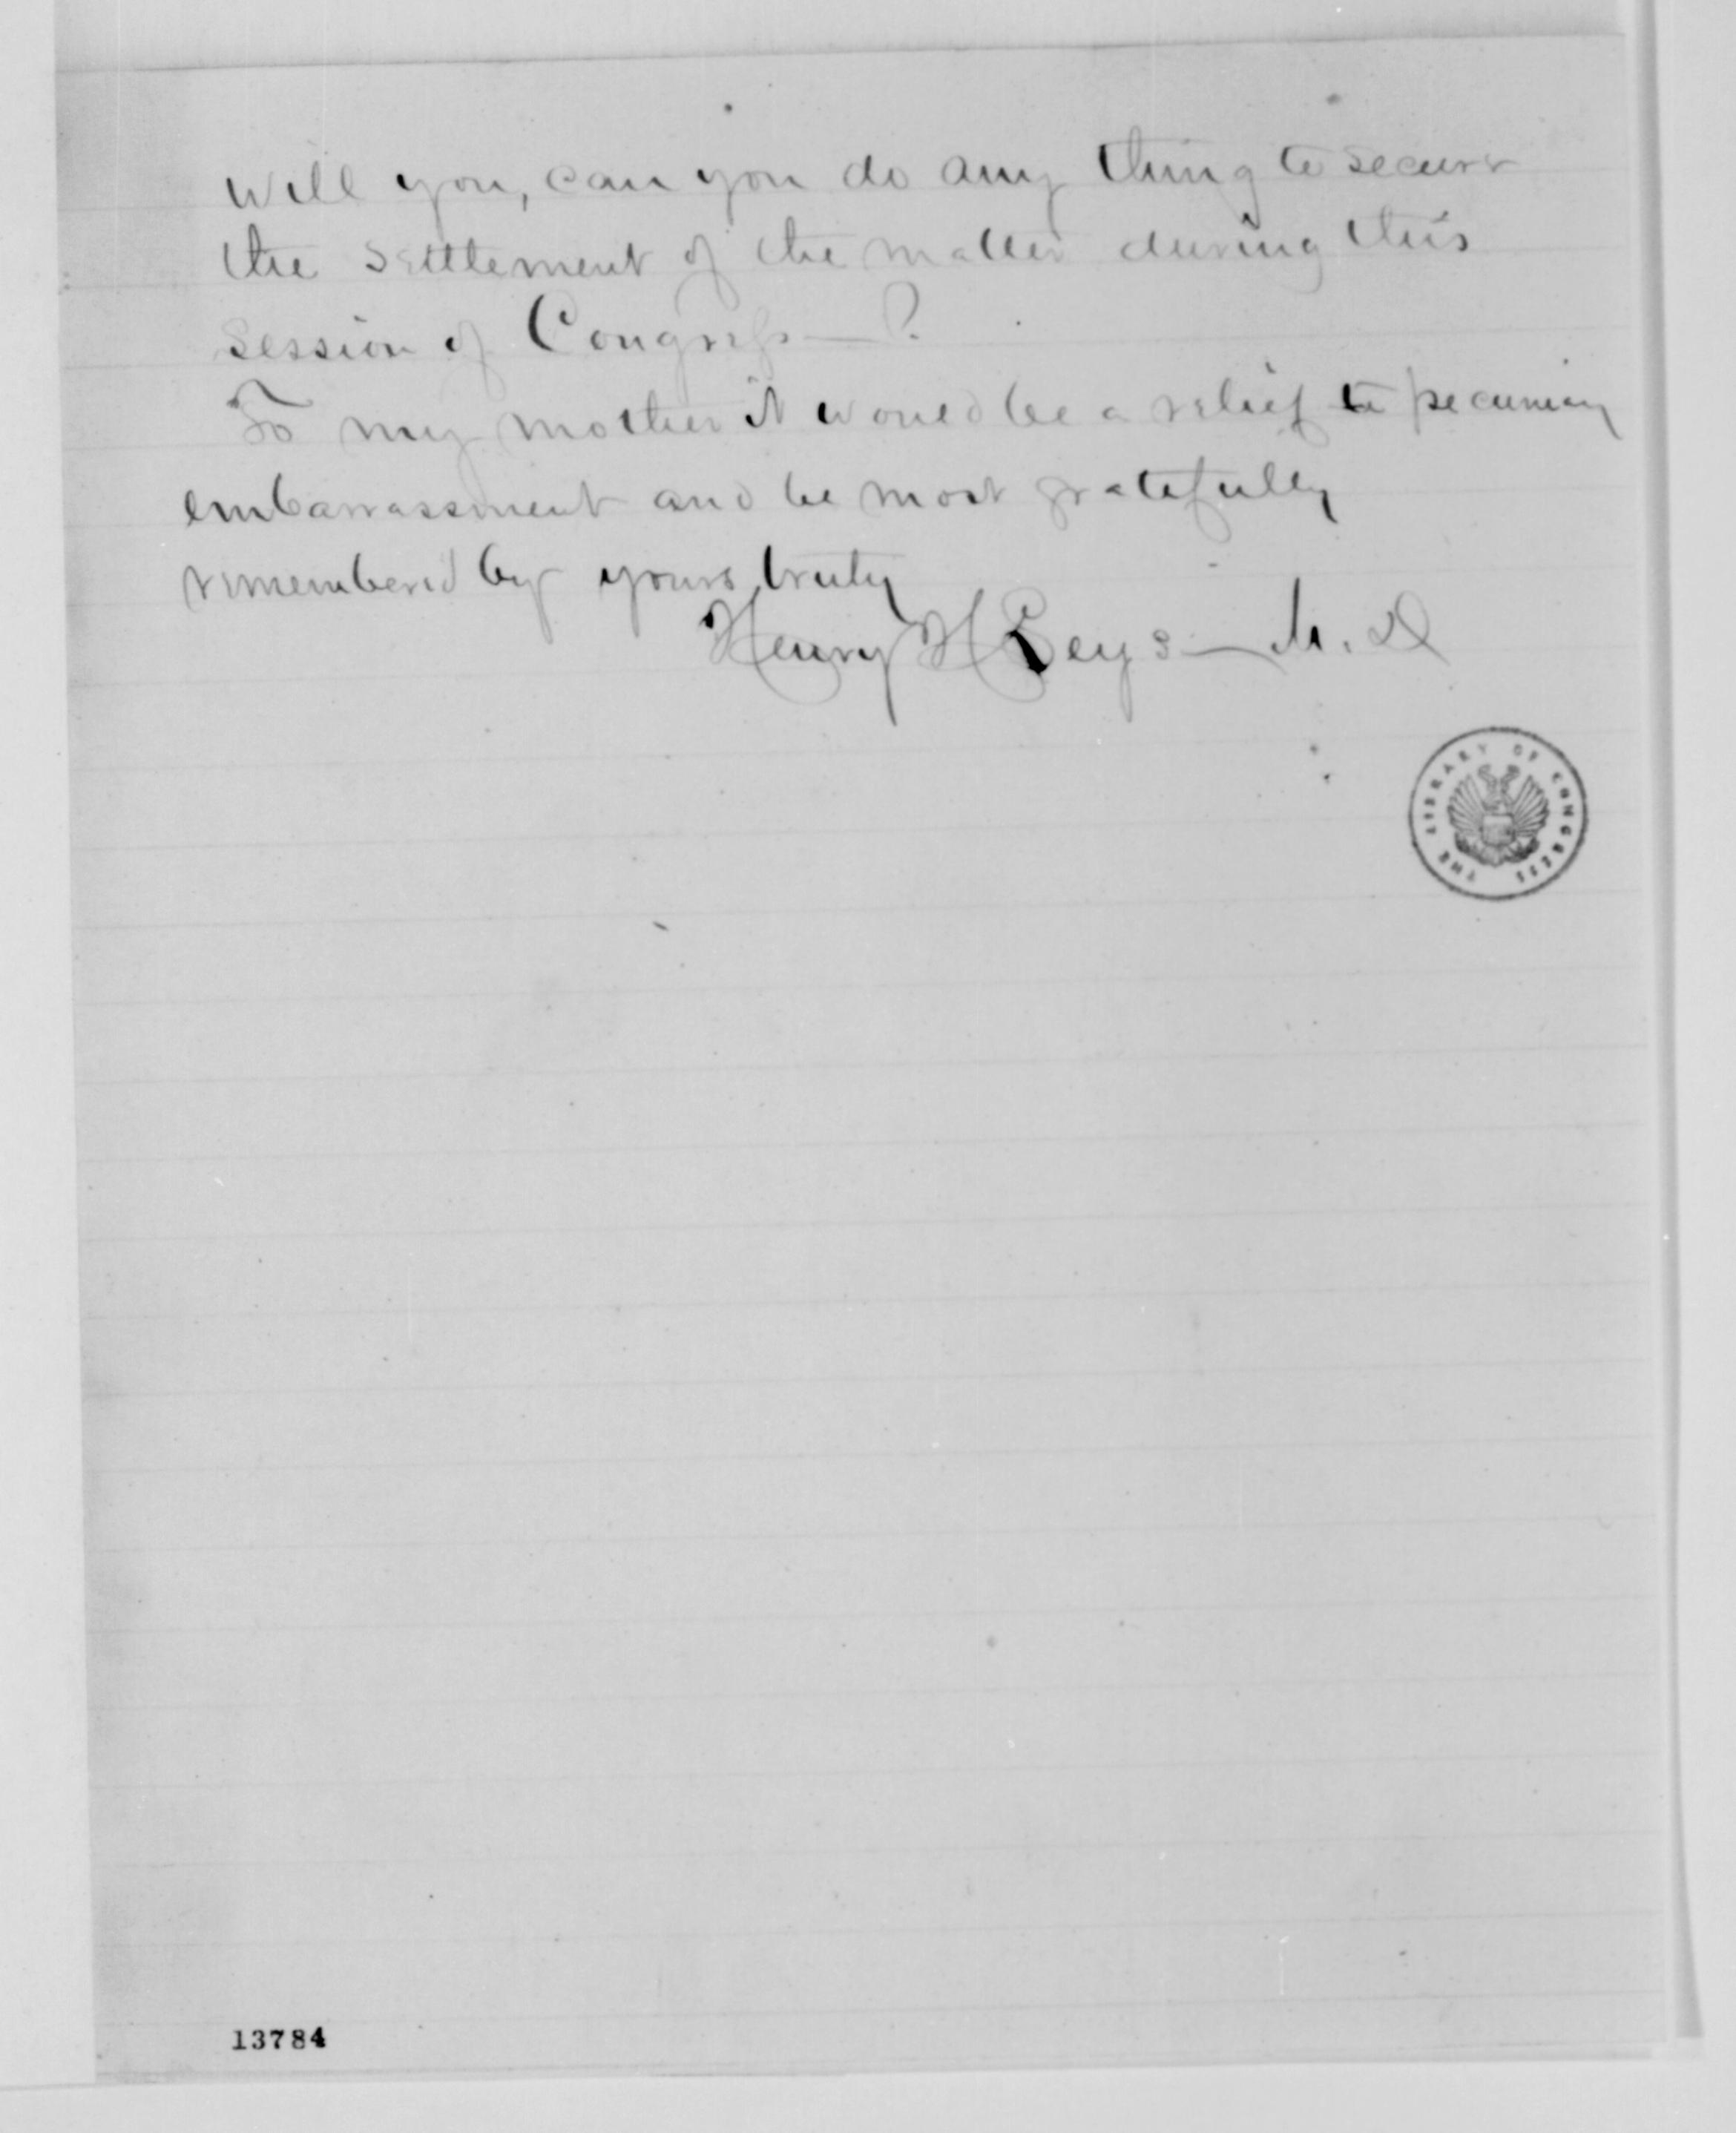 will you, can you do any thing to secure
the settlement of the matter during this
session of Congress—?
To my mother it would be a relief to pecuniary
embarrassment and be most gratefully
remembered by yours truly
Henry H M. D
THE LIBRARY OF CONGRESS
13784